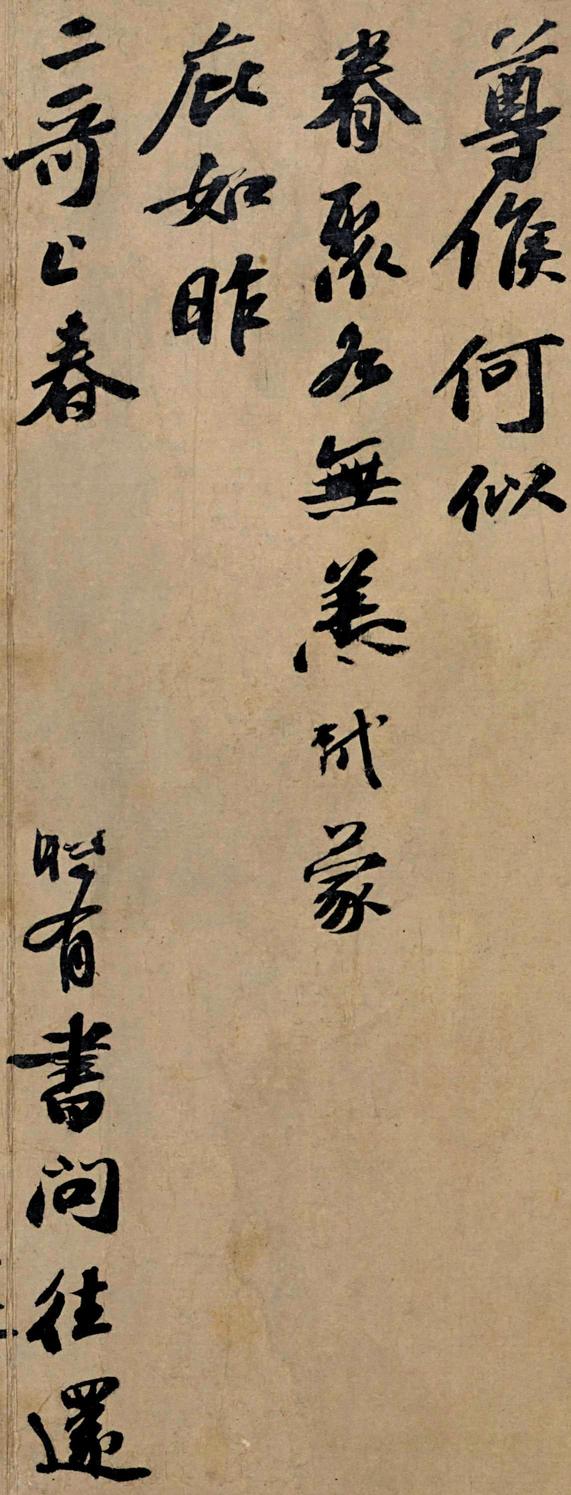 尊候何似
眷聚各無恙軾蒙
庇如昨
二哥上春 時有書問往還